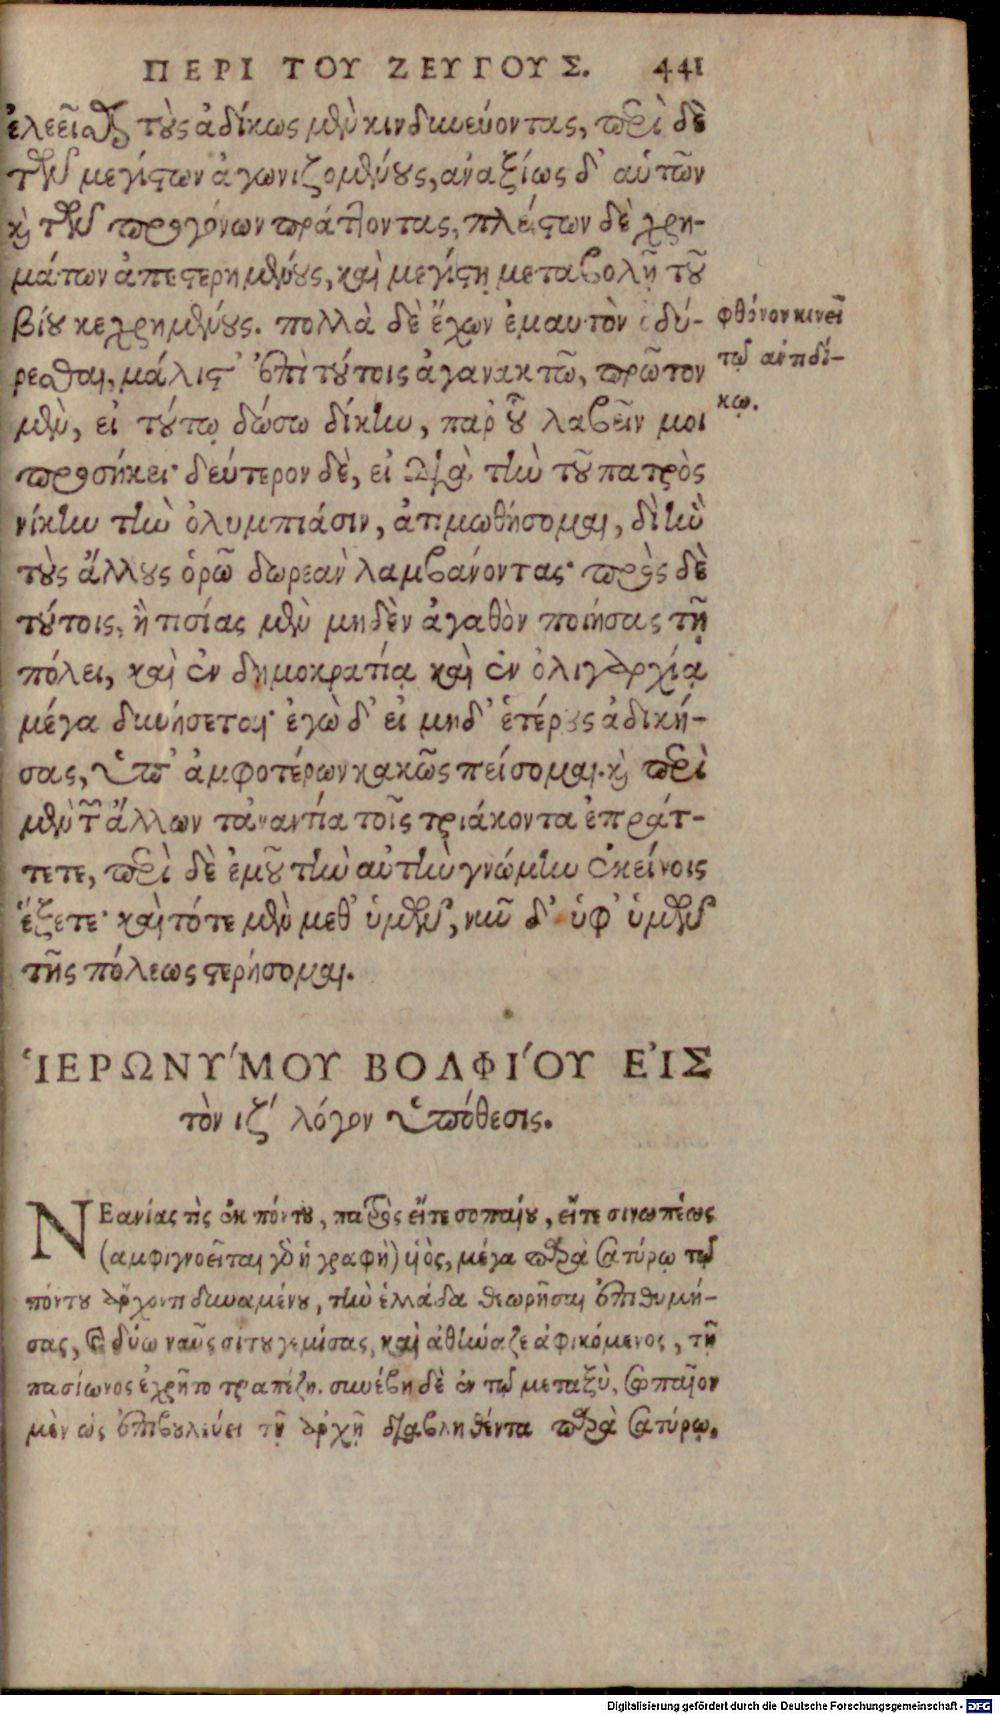 ΠΕΡΙ ΤΟΥ ΖΕΥΓΟΥΣ. 441
ἐλεεῖσθαι τοὺς ἀδίκως μὲν κινδυνεύοντας, περὶ δὲ
τῶν μεγίστων ἀγωνιζομένους, ἀναξίως δ' αὑτῶν
καὶ τῶν προγόνων πράττοντας, πλείστων δὲ χρη-
μάτων ἀπεστερημένους, καὶ μεγίστῃ μεταβολῇ τοῦ
βίου κεχρημένους. πολλὰ δὲ ἔχων ἐμαυτὸν ὀδύ-
ρεσθαι, μάλιστ' ἐπὶ τούτοις ἀγανακτῶ, πρῶτον
μὲν, εἰ τούτῳ δώσω δίκην, παρ' οὗ λαβεῖν μοι
προσήκει· δεύτερον δὲ, εἰ διὰ τὴν τοῦ πατρὸς
νίκην τὴν ὀλυμπιάσιν, ἀτιμωθήσομαι, δι' ἣν
τοὺς ἄλλους ὁρῶ δωρεὰν λαμβάνοντας· πρὸς δὲ
τούτοις, ἢ τισίας μὲν μηδὲν ἀγαθὸν ποιήσας τῇ
πόλει, καὶ ἐν δημοκρατίᾳ καὶ ἐν ὀλιγαρχίᾳ
μέγα δυνήσεται· ἐγὼ δ' εἰ μηδ' ἑτέρους ἀδική-
σας, ὑπ' ἀμφοτέρων κακῶς πείσομαι. καὶ περὶ
μὲν τῶν ἄλλων τἀναντία τοῖς τριάκοντα ἐπράτ-
τετε, περὶ δὲ ἐμοῦ τὴν αὐτὴν γνώμην ἐκείνοις
ἕξετε· καὶ τότε μὲν μεθ' ὑμῶν, νῦν δ' ὑφ' ὑμῶν
τῆς πόλεως στερήσομαι.
φθόνον κινεῖ
τῷ ἀντιδί-
κῳ.
ἹΕΡΩΝΥΜΟΥ ΒΟΛΦΙΟΥ ΕἸΣ
τὸν ιζ' λόγον ὑπόθεσις.
ΝΕανίας τὶς ἐκ πόντου, πατρὸς εἴτε σοπαίου, εἴτε σινωπέως
(ἀμφιγνοεῖται γὰρ ἡ γραφὴ) υἱὸς, μέγα παρὰ σατύρῳ τῷ
πόντου ἄρχοντι δυναμένου, τὴν ἑλλάδα θεωρῆσαι ἐπιθυμή-
σας, καὶ δύω ναῦς σίτου γεμίσας, καὶ ἀθήναζε ἀφικόμενος, τῇ
πασίωνος ἐχρῆτο τραπέζῃ. συνέβη δὲ ἐν τῷ μεταξὺ, σωπαῖον
μὲν ὡς ἐπιβουλεύει τῇ ἀρχῇ διαβληθέντα παρὰ σατύρῳ,
Digitalisierung gefördert durch die Deutsche Forschungsgemeinschaft - DFG